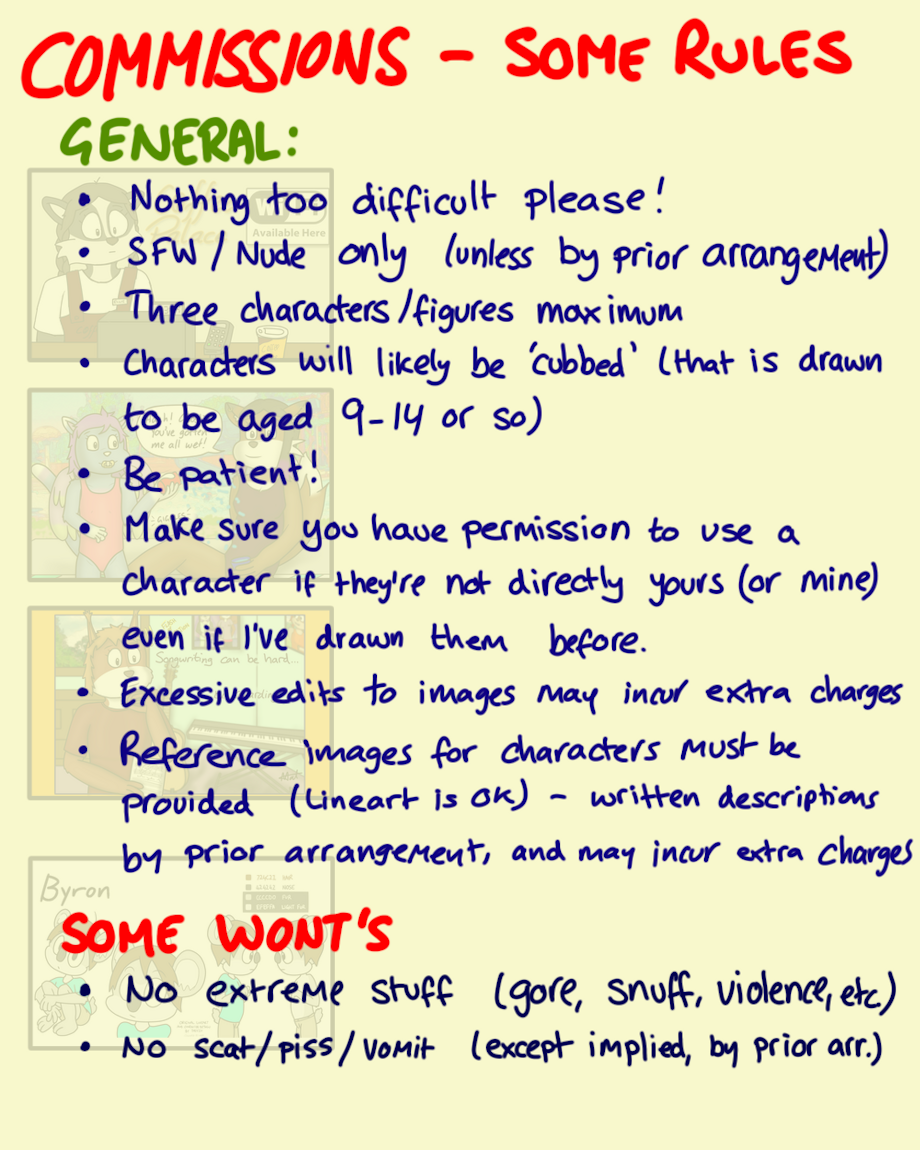 COMMISSIONS - SOME RULES
GENERAL:
• Nothing too difficult please!
• SFW / Nude only (unless by prior arrangement)
• Three characters/figures maximum
• Characters will likely be 'cubbed' (that is drawn
to be aged 9-14 or so)
• Be patient!
• Make sure you have permission to use a
character if they're not directly yours (or mine)
even if I've drawn them before.
• Excessive edits to images may incur extra charges
• Reference images for characters must be
provided (Lineart is OK) - written descriptions
by prior arrangement, and may incur extra charges
SOME WONT'S
• No extreme stuff (gore, snuff, violence, etc)
• No scat/piss/vomit (except implied, by prior arr.)
Available Here
me all wet!
Songwriting can be hard...
Byron